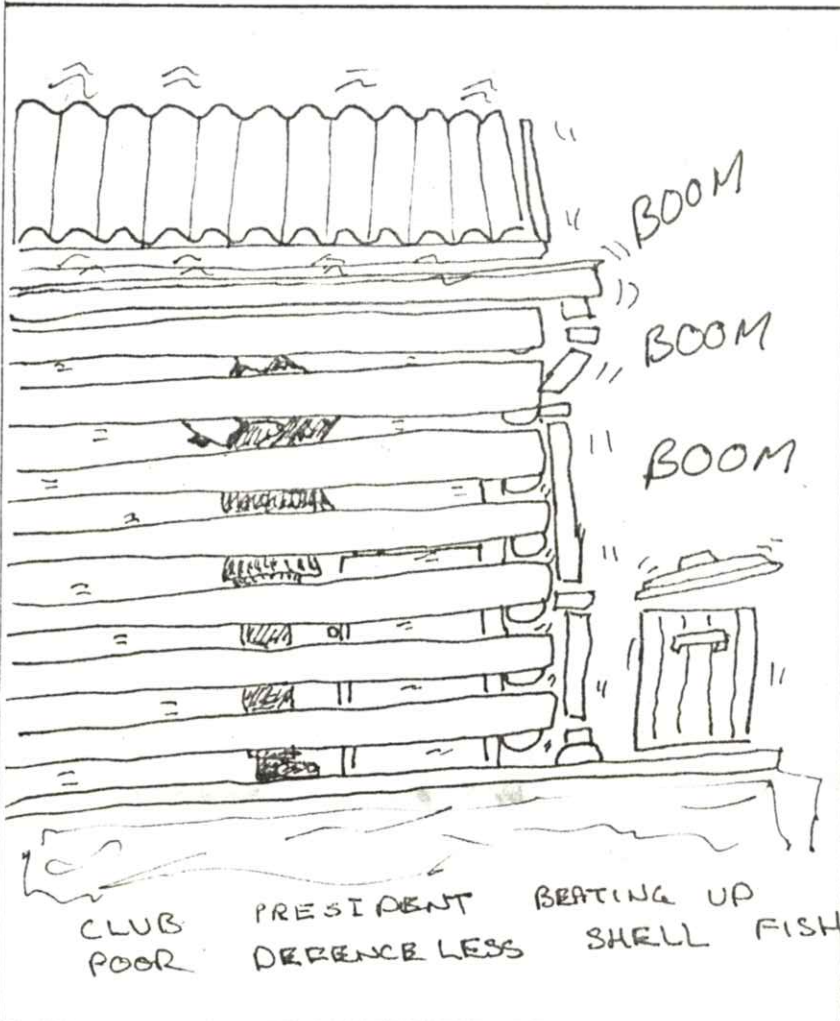 BOOM
BOOM
BOOM
CLUB PRESIDENT BEATING UP
POOR DEFENCELESS SHELL FISH